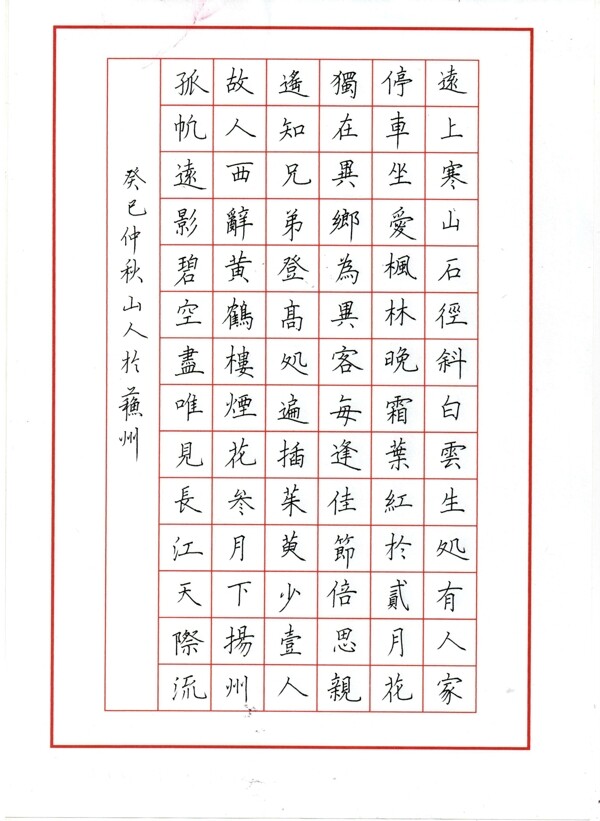 遠上寒山石徑斜白雲生処有人家
停車坐愛楓林晚霜葉紅於貳月花
獨在異鄉為異客每逢佳節倍思親
遙知兄弟登高処遍插茱萸少壹人
故人西辭黃鶴樓煙花參月下揚州
孤帆遠影碧空盡唯見長江天際流
癸巳仲秋山人於蘇州